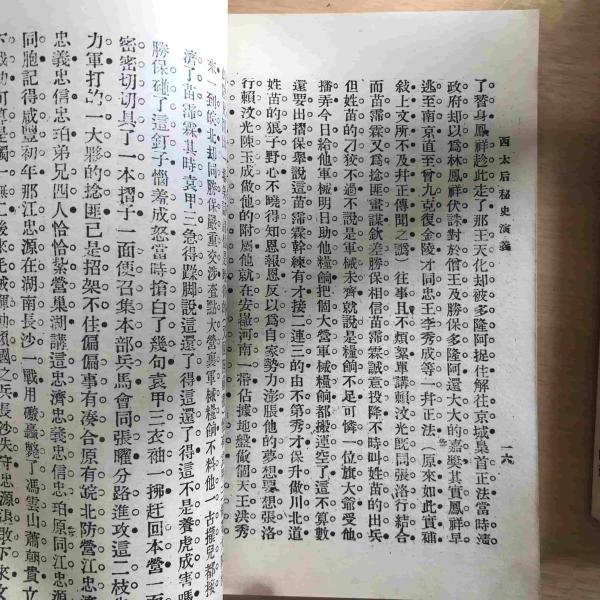 西太后秘史演義
一六
了替身鳳祥趁此走了那王天化却被多隆阿捉住解往京城梟首正法當時滿
政府却以為林鳳祥伏誅對於僧王及勝保多隆阿還大大的嘉奬其實鳳祥早
逃至南京直至曾九克復金陵才同忠王李秀成等一幷正法(原來如此實補
敍上文所不及幷正傳聞之譌)往事且不煩絮單講賴汶光旣同張洛行結合
而苗霈霖又為捻匪畫謀欽差勝保相信苗霈霖誠意投降不時叫姓苗的出兵
但姓苗的刁狡不過不說是軍械未齊就說是糧餉不足可憐一位旗大爺受他
播弄今日給他軍械明日助他糧餉把個大營軍械糧餉都搬運空了這不算數
還要出摺保舉說這苗霈霖幹練有才接二連三的由不第秀才保升做川北道
姓苗的狼子野心不曉得知恩報恩反以為自家勢力澎脹他的夢想要想張洛
行賴汶光陳玉成做他的附屬他就在安徽河南一帶佔據地盤做個天王洪秀
來到皖北却同勝保嚴重交涉查點大營裏軍械糧餉不料他一古攏兒都接
濟了苗霈霖其時袁甲三急得跺脚說這還了得這還了得這不是養虎成害嗎
勝保碰了這釘子惱羞成怒當時搶白了幾句袁甲三衣袖一拂趕回本營一面
密密切切具了一本摺子一面便召集本部兵馬會同張曜分路進攻這二枝生
力軍打的一大夥的捻匪已是招架不住偏偏事有凑合原有皖北防營江忠濟
忠義忠信忠珀弟兄四人恰恰紮營巢湖講這忠濟忠義忠信忠珀原同江忠源
同胞記得咸豐初年那江忠源在湖南長沙一戰用礮轟斃了馮雲山蕭朝貴立